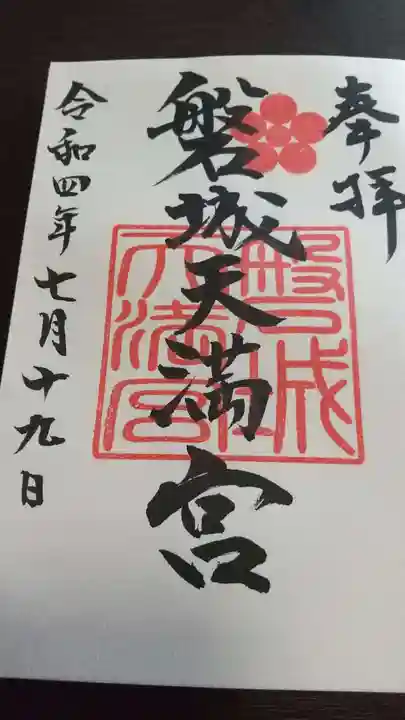 奉拝
磐城天満宮
磐城
天満宮
令和四年七月十九日